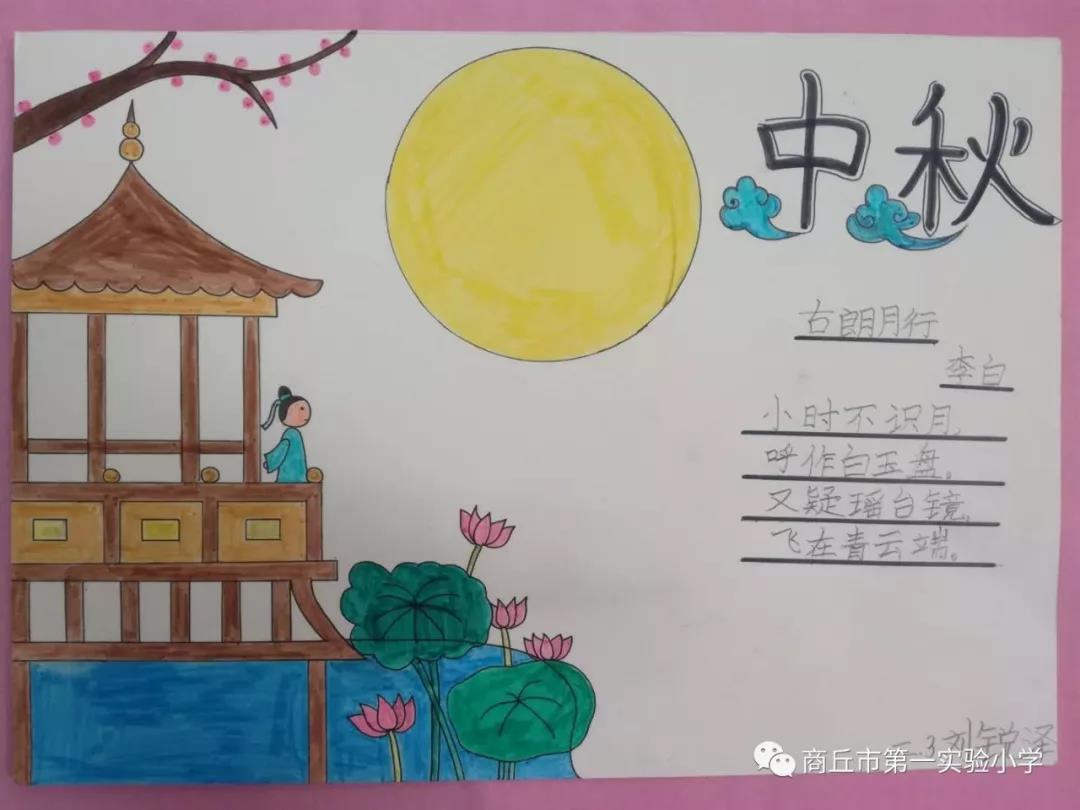 中秋
古朗月行
李白
小时不识月,
呼作白玉盘。
又疑瑶台镜,
飞在青云端。
二.3刘锐泽
商丘市第一实验小学